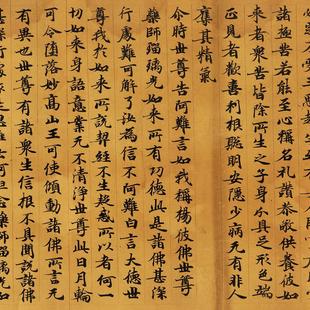 諸極苦若能至心稱名礼讃恭敬供養彼如
來者衆苦皆除所生之子身分具足形色端
正見者歡喜利根聡明安隱少病无有非人
奪其精氣
尒時世尊告阿難言如我稱揚彼佛世尊
藥師瑠璃光如來所有功德此是諸佛甚深
行處難可解了汝為信不阿難白言大德世
尊我於如來所說契經不生疑惑所以者何一
切如來身語意業无不清淨世尊此日月輪
可令墮落妙高山王可使傾動諸佛所言无
有異也世尊有諸衆生信根不具聞說諸佛